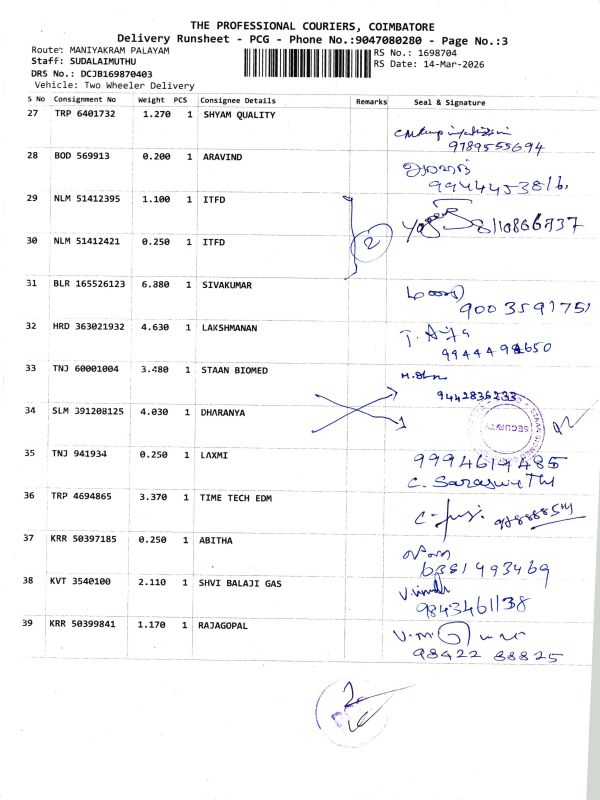 THE PROFESSIONAL COURIERS, COIMBATORE
Delivery Runsheet - PCG - Phone No.:9047080280 - Page No.:3
Route: MANIYAKRAM PALAYAM
RS No.: 1698704
Staff: SUDALAIMUTHU
RS Date: 14-Mar-2026
DRS No.: DCJB169870403
Vehicle: Two Wheeler Delivery
S No Consignment No Weight PCS Consignee Details Remarks Seal & Signature
27 TRP 6401732 1.270 1 SHYAM QUALITY
9789555694
28 BOD 569913 0.200 1 ARAVIND
29 NLM 51412395 1.100 1 ITFD
2
30 NLM 51412421 0.250 1 ITFD
31 BLR 165526123 6.880 1 SIVAKUMAR
9003591751
32 HRD 363021932 4.630 1 LAKSHMANAN
33 TNJ 60001004 3.480 1 STAAN BIOMED
9442836233
34 SLM 391208125 4.030 1 DHARANYA
1
SECURITY
35 TNJ 941934 0.250 1 LAXMI
9994619485
C. Saraswathi
36 TRP 4694865 3.370 1 TIME TECH EDM
37 KRR 50397185 0.250 1 ABITHA
6381493469
38 KVT 3540100 2.110 1 SHVI BALAJI GAS
9843461138
39 KRR 50399841 1.170 1 RAJAGOPAL
98422 88825